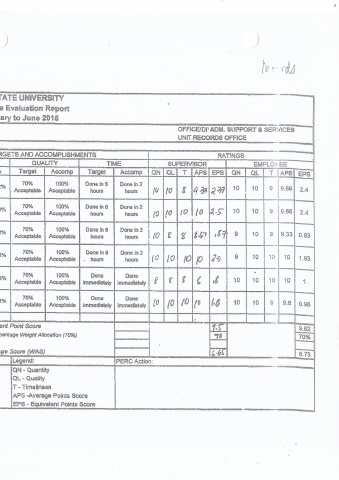 STATE UNIVERSITY
e Evaluation Report
ary to June 2016
OFFICE/DI ADM. SUPPORT & SERVICES
UNIT RECORDS OFFICE
RGETS AND ACCOMPLISHMENTS RATINGS
QUALITY TIME SUPERVISOR EMPLOYEE
Target Accomp Target Accomp QN QL T APS EPS QN QL T APS EPS
70% Acceptable 100% Acceptable Done in 5 hours Done in 2 hours 10 10 8 10 10 9 9.66 2.4
70% Acceptable 100% Acceptable Done in 6 hours Done in 2 hours 10 10 10 10 2.5 10 10 9 9.66 2.4
70% Acceptable 100% Acceptable Done in 6 hours Done in 2 hours 10 8 8 9 10 9 9.33 0.93
70% Acceptable 100% Acceptable Done in 6 hours Done in 2 hours 10 10 10 10 2.0 9 10 10 10 1.93
70% Acceptable 100% Acceptable Done immediately Done immediately 8 8 8 10 10 10 10 1
70% Acceptable 100% Acceptable Done immediately Done immediately 10 10 10 10 10 10 9 9.6 0.96
ent Point Score 9.5 9.62
ercentage Weight Allocation (70%) 70%
ge Score (WAS) 6.65 6.73
Legend: PERC Action:
QN - Quantity
QL - Quality
T - Timeliness
APS -Average Points Score
EPS - Equivalent Points Score